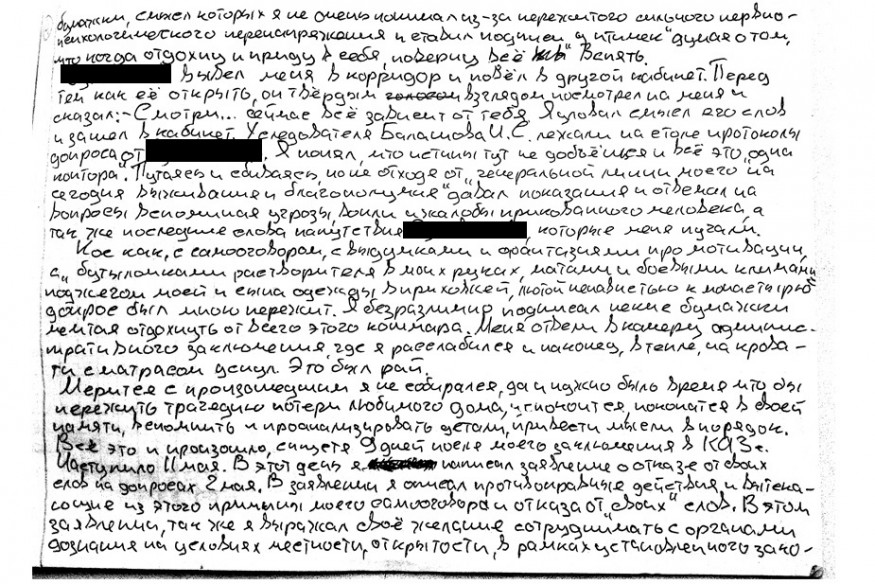 бумажки, смысл которых я не очень понимал из-за пережитого сильного нервно-
психологического перенапряжения и ставил подписи у птичек" думая о том,
что когда отдохну и приду в себя, поверну всё вспять.
вывел меня в корридор и повёл в другой кабинет. Перед
тем как её открыть, он твёрдым взглядом посмотрел на меня и
сказал:- Смотри... сейчас всё зависит от тебя. Я уловал смысл его слов
и зашел в кабинет. У следователя Балашова И.С. лежали на столе протоколы
допроса от . Я понял, что истины тут не добъёшься и всё это „одна
контора". Путаясь и сбиваясь, но не отходя от „генеральной линии моего на
сегодня выживания и благополучия" давал показания и отвечал на
вопросы вспоминая угрозы, вопли и жалобы прикованного человека, а
так же последние слова напутствия , которые меня пугали.
Кое как, с самооговором, с выдумками и фантазиями про мотивации,
с „бутылочками растворителя в моих руках, матами и боевыми кличами
поджегом моей и сына одежды в прихожей, лютой ненавистью к монастырю"
допрос был мною пережит. Я безразлично подписал некие бумажки
мечтая отдохнуть от всего этого кошмара. Меня отвели в камеру админис-
тративного заключения, где я расслабился и наконец, в тепле, на крова-
ти с матрасом уснул. Это был рай.
Мерится с произошедшим я не собирался, да и нужно было время что бы
пережить трагедию потери любимого дома, успокоится, покопатся в своей
памяти, вспомнить и проанализировать детали, привести мысли в порядок.
Всё это и произошло, спустя 9 дней после моего заключения в КАЗе.
Наступило 11 мая. В этот день я написал заявление о отказе от своих
слов на допросах 2 мая. В заявлении я описал противоправные действия и вытека-
ющие из этого причины моего самооговора и отказа от „своих" слов. В этом
заявлении, так же я выражал своё желание сотрудничать с органами
дознания на условиях честности, открытости, в рамках установленного зако-